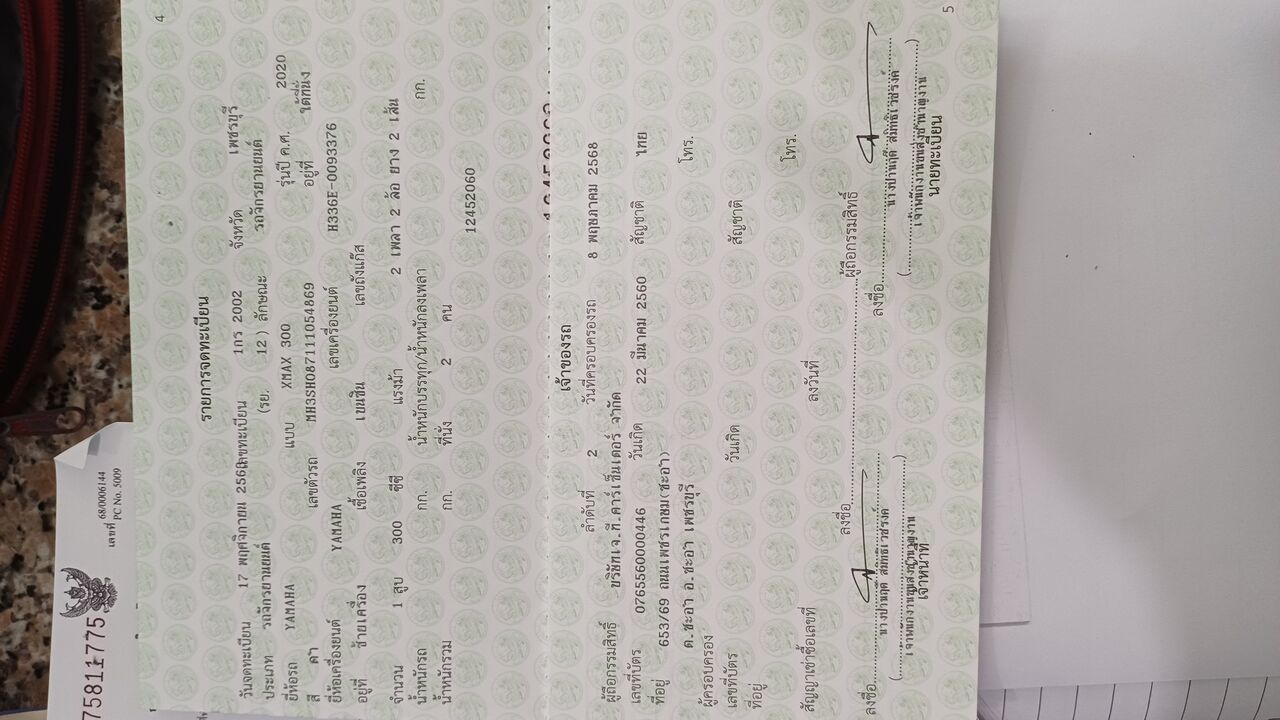 4
รายการจดทะเบียน
วันจดทะเบียน 17 พฤศจิกายน 2563 เลขทะเบียน 1กร 2002 จังหวัด เพชรบุรี
ประเภท รถจักรยานยนต์ (รย. 12 ) ลักษณะ รถจักรยานยนต์
ยี่ห้อรถ YAMAHA แบบ XMAX 300 รุ่นปี ค.ศ. 2020
สี ดำ เลขตัวรถ MH3SH087111054869 อยู่ที่ ใต้ที่นั่ง
ยี่ห้อเครื่องยนต์ YAMAHA เลขเครื่องยนต์ H336E-0093376
อยู่ที่ ซ้ายเครื่อง เชื้อเพลิง เบนซิน เลขถังแก๊ส
จำนวน 1 สูบ 300 ซีซี แรงม้า 2 เพลา 2 ล้อ ยาง 2 เส้น
น้ำหนักรถ กก. น้ำหนักบรรทุก/น้ำหนักลงเพลา กก.
น้ำหนักรวม กก. ที่นั่ง 2 คน
12452060
เจ้าของรถ
ลำดับที่ 2 วันที่ครอบครองรถ 8 พฤษภาคม 2568
ผู้ถือกรรมสิทธิ์ บริษัทเจ.ที.คาร์เซ็นเตอร์ จำกัด
เลขที่บัตร 0765560000446 วันเกิด 22 มีนาคม 2560 สัญชาติ ไทย
ที่อยู่ 653/69 ถนนเพชรเกษม(ชะอำ)
ต.ชะอำ อ.ชะอำ เพชรบุรี โทร.
ผู้ครอบครอง
เลขที่บัตร วันเกิด สัญชาติ
ที่อยู่
โทร.
สัญญาเช่าซื้อเลขที่ ลงวันที่
ลงชื่อ ผู้ถือกรรมสิทธิ์
ลงชื่อ ลงชื่อ
เจ้าหน้าที่ นายทะเบียน
5
เลขที่ 68/0006144
PC No. 5009
7581177